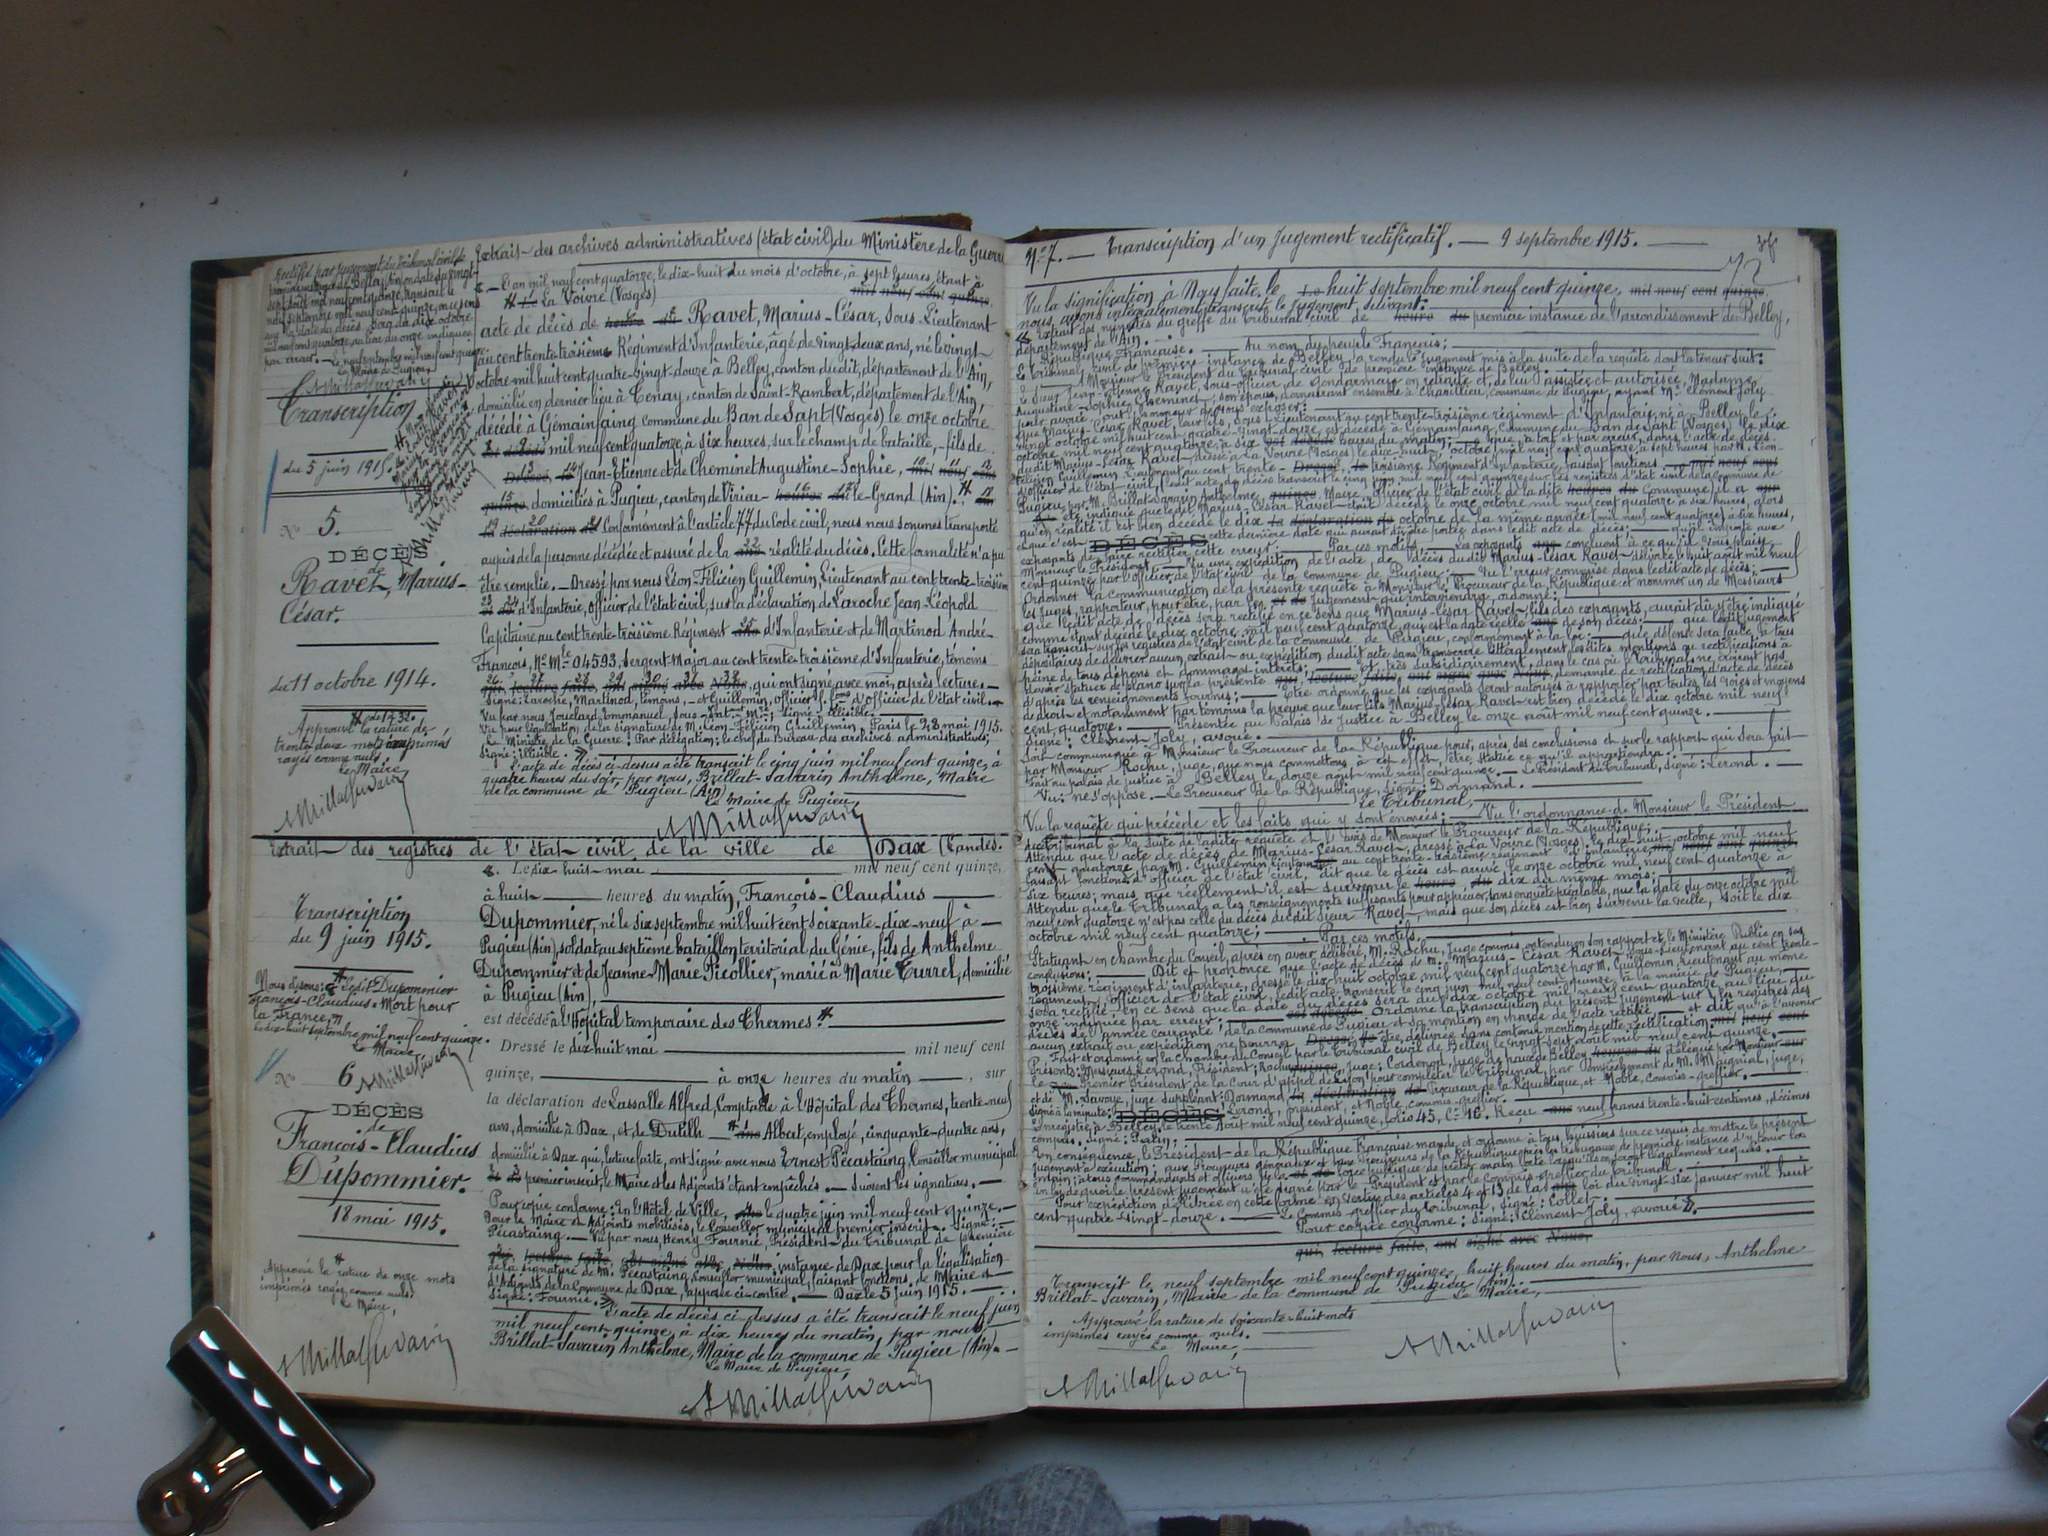 Extrait des archives administratives (état civil) du Ministère de la Guerre
Rectifié par jugement du Tribunal civil de
première instance de Belley en date du vingt-
sept août mil neuf cent quinze, transcrit le
neuf septembre mil neuf cent quinze, en ce sens
que la date du décès sera du dix octobre
mil neuf cent quatorze, au lieu du onze indiquée
par erreur. — Le neuf septembre mil neuf cent quinze.
Le Maire de Pugieu,
Transcription
du 5 juin 1915.
N° 5.
DÉCÈS
de
Ravet, Marius-
César.
du 11 octobre 1914.
Approuvé la rature de
trente deux mots imprimés
rayés comme nuls
Le Maire
L'an mil neuf cent quatorze, le dix-huit du mois d'octobre, à sept heures, étant à
La Voivre (Vosges)
acte de décès de Ravet, Marius-César, Sous-Lieutenant
au cent trente-troisième Régiment d'Infanterie, âgé de vingt deux ans, né le vingt
octobre mil huit cent quatre-vingt-douze à Belley, canton dudit, département de l'Ain,
domicilié en dernier lieu à Tenay, canton de Saint-Rambert, département de l'Ain,
décédé à Gémainfaing commune du Ban de Sapt (Vosges) le onze octobre
mil neuf cent quatorze, à six heures, sur le champ de bataille, fils de
Jean-Etienne et de Cheminet Augustine-Sophie,
domiciliés à Pugieu, canton de Virieu-le-Grand (Ain).
Conformément à l'article 77 du Code civil, nous nous sommes transporté
auprès de la personne décédée et assuré de la réalité du décès. Cette formalité n'a pu
être remplie. — Dressé par nous Léon-Félicien Guillemin, Lieutenant au cent trente-troisième
d'Infanterie, Officier de l'état civil, sur la déclaration de Laroche Jean-Léopold
Capitaine au cent trente-troisième Régiment d'Infanterie et de Martinod André-
François, N° Mle 04593, Sergent-Major au cent trente-troisième d'Infanterie, témoins
qui ont signé avec moi, après lecture. —
Signé: Laroche, Martinod, témoins, — et Guillemin, officier d'officier de l'état civil. —
Vu pour légalisation de la signature de M. Léon-Félicien Guillemin. Paris le 28 mai 1915.
Le Ministre de la Guerre: Par délégation: le chef du Bureau des archives administratives;
Signé: illisible.
L'acte de décès ci-dessus a été transcrit le cinq juin mil neuf cent quinze, à
quatre heures du soir, par nous, Brillat-Savarin Anthelme, Maire
de la commune de Pugieu (Ain)
Le Maire de Pugieu,
Extrait des registres de l'état civil de la ville de Dax (Landes.
Transcription
du 9 juin 1915.
Nous disons: Ledit Dupommier
François-Claudius "Mort pour
la France."
Le dix-huit septembre mil neuf cent quinze.
Le Maire
N° 6
DÉCÈS
de
François-Claudius
Dupommier.
18 mai 1915.
Approuvé la rature de onze mots
imprimés rayés comme nuls.
Le Maire,
Le dix huit mai mil neuf cent quinze,
à huit heures du matin, François-Claudius
Dupommier, né le six septembre mil huit cent soixante-dix-neuf à
Pugieu (Ain), soldat au septième bataillon territorial du Génie, fils de Anthelme
Dupommier et de Jeanne-Marie Picollier, marié à Marie Currel, domicilié
à Pugieu (Ain),
est décédé à l'Hôpital temporaire des Thermes.
Dressé le dix huit mai mil neuf cent
quinze, à onze heures du matin, sur
la déclaration de Lassalle Alfred, Comptable à l'Hôpital des Thermes, trente-neuf
ans, domicilié à Dax, et de Dutilh Albert, employé, cinquante-quatre ans,
domicilié à Dax qui, lecture faite, ont signé avec nous Ernest Pécastaing, Conseiller municipal
premier inscrit, le Maire et les Adjoints étant empêchés. — Suivent les signatures. —
Pour copie conforme: En l'Hôtel de Ville, le quatre juin mil neuf cent quinze. —
Pour le Maire et Adjoints mobilisés, le Conseiller municipal premier inscrit. Signé:
Pécastaing. — Vu par nous, Henry Fournié, Président du Tribunal de première
instance de Dax pour la légalisation
de la signature de M. Pécastaing, Conseiller municipal, faisant fonctions de Maire et
d'Adjoints de la Commune de Dax, apposée ci-contre. — Dax le 5 juin 1915. —
Signé: Fournié.
L'acte de décès ci-dessus a été transcrit le neuf juin
mil neuf cent quinze, à dix heures du matin, par nous
Brillat-Savarin Anthelme, Maire de la commune de Pugieu (Ain). —
Le Maire de Pugieu,
N° 7. — Transcription d'un Jugement rectificatif. — 9 septembre 1915. —
72
Vu la signification à Nous faite, le huit septembre mil neuf cent quinze,
nous, avons intégralement transcrit le Jugement suivant:
extrait des minutes du greffe du Tribunal civil de première instance de l'arrondissement de Belley,
département de l'Ain. —
République Française. — Au nom du peuple Français;
Le Tribunal civil de première instance de Belley, a rendu le Jugement mis à la suite de la requête dont la teneur suit:
A Monsieur le Président du Tribunal civil de première instance de Belley.
Le Sieur Jean-Etienne Ravet, sous-officier de gendarmerie en retraite et de lui assistée et autorisée, Madame
Augustine-Sophie Cheminet, son épouse, demeurant ensemble à Charillieu, commune de Pugieu, ayant Me Clément Joly
pour avoué, ont l'honneur de vous exposer:
Que Marius-César Ravet, leur fils, sous-lieutenant au cent trente-troisième régiment d'Infanterie, né à Belley le
vingt octobre mil huit cent quatre-vingt-douze, est décédé à Gémainfaing, commune du Ban de Sapt (Vosges) le dix
octobre mil neuf cent quatorze, à six heures du matin; — que, à tort et par erreur, dans l'acte de décès
dudit Marius-César Ravet, dressé à La Voivre (Vosges) le dix-huit octobre mil neuf cent quatorze à sept heures par M. Léon-
Félicien Guillemin, Lieutenant au cent trente-troisième Régiment d'Infanterie, faisant fonctions
d'officier de l'état civil, ledit acte de décès transcrit le cinq juin mil neuf cent quinze sur les registres d'état civil de la commune de
Pugieu, par M. Brillat-Savarin Anthelme, Maire, officier de l'état civil de la dite commune, il a
été indiqué que ledit Marius-César Ravet était décédé le onze octobre mil neuf cent quatorze à six heures, alors
qu'en réalité il est bien décédé le dix octobre de la même année (mil neuf cent quatorze) à six heures,
et que c'est cette dernière date qui aurait dû être portée dans ledit acte de décès; — qu'il importe aux
exposants de faire rectifier cette erreur; — Par ces motifs — Les exposants concluent à ce qu'il vous plaise
Monsieur le Président — Vu une expédition de l'acte de décès dudit Marius-César Ravet délivrée le huit août mil neuf
cent quinze par l'officier de l'état civil de la commune de Pugieu; — Vu l'erreur commise dans ledit acte de décès; —
Ordonner la communication de la présente requête à Monsieur le Procureur de la République et nommer un de Messieurs
les Juges, rapporteur, pour être, par Jugement qui interviendra, ordonné:
Que ledit acte de décès sera rectifié en ce sens que Marius-César Ravet, fils des exposants, aurait dû y être indiqué
comme étant décédé le dix octobre mil neuf cent quatorze, qui est la date réelle de son décès; — que ledit jugement
sera transcrit sur les registres de l'état civil de la commune de Pugieu, conformément à la loi; — que défense sera faite à tous
dépositaires de délivrer aucun extrait ou expédition dudit acte sans transcrire littéralement les dites mentions ou rectifications à
peine de tous dépens et dommages intérêts; — et, très subsidiairement, dans le cas où le Tribunal ne croirait pas
devoir statuer de plano sur la présente demande de rectification d'acte de décès
d'après les renseignements fournis; — Etre ordonné que les exposants seront autorisés à rapporter par toutes les voies et moyens
de droit et notamment par témoins la preuve que leur fils Marius-César Ravet est bien décédé le dix octobre mil neuf
cent quatorze. — Présentée au Palais de Justice à Belley le onze août mil neuf cent quinze. —
Signé: Clément Joly, avoué. —
Soit communiqué à Monsieur le Procureur de la République pour, après, ses conclusions et sur le rapport qui sera fait
par Monsieur Rochu, juge, que nous commettons à cet effet, être statué ce qu'il appartiendra;
Fait au palais de justice à Belley le douze août mil neuf cent quinze. — Le Président du Tribunal, signé: Lerond. —
Vu: ne s'oppose. — Le Procureur de la République, signé: Dormand. —
Le Tribunal,
Vu la requête qui précède et les faits qui y sont énoncés; — Vu l'ordonnance de Monsieur le Président
du Tribunal à la suite de ladite requête et l'avis de Monsieur le Procureur de la République;
Attendu que l'acte de décès de Marius-César Ravet, dressé à La Voivre (Vosges) le dix huit octobre mil neuf
cent quatorze, par M. Guillemin lieutenant au cent trente-troisième régiment d'infanterie,
faisant fonctions d'officier de l'état civil, dit que le décès est arrivé le onze octobre mil neuf cent quatorze à
six heures; mais que réellement il est survenu le dix du même mois;
Attendu que le Tribunal a les renseignements suffisants pour apprécier, sans enquête préalable, que la date du onze octobre mil
neuf cent quatorze n'est pas celle du décès dudit sieur Ravet, mais que son décès est bien survenu la veille, soit le dix
octobre mil neuf cent quatorze; — Par ces motifs,
Statuant en chambre du Conseil, après en avoir délibéré, M. Rochu, Juge commis, entendu en son rapport et le Ministère Public en ses
conclusions; — Dit et prononce que l'acte de décès de M. Marius-César Ravet, sous-lieutenant au cent trente-
troisième régiment d'infanterie, dressé le dix-huit octobre mil neuf cent quatorze par M. Guillemin, lieutenant au même
régiment, officier de l'état civil, ledit acte transcrit le cinq juin mil neuf cent quinze à la mairie de Pugieu,
sera rectifié en ce sens que la date du décès sera du dix octobre mil neuf cent quatorze au lieu du
onze indiquée par erreur; — Ordonne la transcription du présent jugement sur les registres des
décès de l'année courante de la Commune de Pugieu et sa mention en marge de l'acte rectifié — et dit qu'à l'avenir
aucun extrait ou expédition ne pourra être délivrée sans contenir mention de cette rectification.
Fait et ordonné en la chambre du Conseil par le Tribunal civil de Belley le vingt-sept août mil neuf cent quinze. —
Présents: Messieurs Lerond, Président; Rochu, juge; Cordenod, juge de paix de Belley, délégué par Monsieur
le Premier Président de la Cour d'appel de Lyon pour compléter le Tribunal, par empêchement de M. Maignial, juge,
et de M. Savoye, juge suppléant; Dormand Procureur de la République, et Noble, commis-greffier. —
Signé à la minute: Lerond, président, et Noble, commis-greffier.
Enregistré à Belley, le trente août mil neuf cent quinze, folio 45, Ce 16, Reçu neuf francs trente-huit centimes, décimes
compris. Signé: Pratin;
En conséquence, le Président de la République Française mande et ordonne à tous huissiers sur ce requis de mettre le présent
jugement à exécution; aux Procureurs généraux et aux Procureurs de la République près les tribunaux de première instance d'y tenir la
main; à tous commandants et officiers de la force publique de prêter main forte lorsqu'ils en seront légalement requis. —
En foi de quoi le présent jugement a été signé par le Président et par le Commis-greffier du tribunal. —
Pour expédition délivrée en cette forme en vertu des articles 4 et 13 de la loi du vingt-six janvier mil huit
cent quatre vingt-douze. — Le Commis-greffier du tribunal, signé: Collet. —
Pour copie conforme: Signé: Clément-Joly, avoué.
Transcrit le neuf septembre mil neuf cent quinze, huit heures du matin, par nous, Anthelme
Brillat-Savarin, Maire de la commune de Pugieu (Ain). —
Le Maire,
Approuvé la rature de soixante-huit mots
imprimés rayés comme nuls. —
Le Maire,